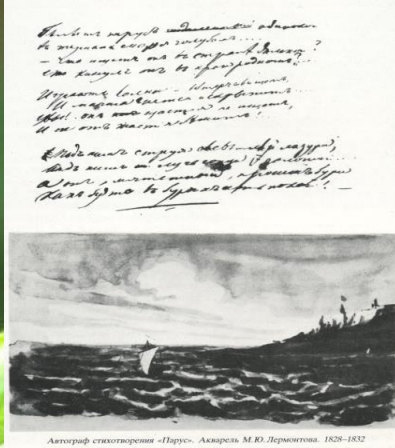 Бѣлѣетъ парусъ одинокой
въ туманѣ моря голубомъ....
– Что ищетъ онъ въ странѣ далекой?
что кинулъ онъ въ краю родномъ?..
Играютъ волны – вѣтеръ свищетъ,
И мачта гнется и скрыпитъ...
Увы! онъ счастія не ищетъ,
И не отъ счастія бѣжитъ!
Подъ нимъ струя свѣтлѣй лазури,
Надъ нимъ лучъ солнца золотой...
А онъ, мятежный, проситъ бури
Какъ будто въ буряхъ есть покой! –
Автограф стихотворения «Парус». Акварель М.Ю. Лермонтова. 1828–1832